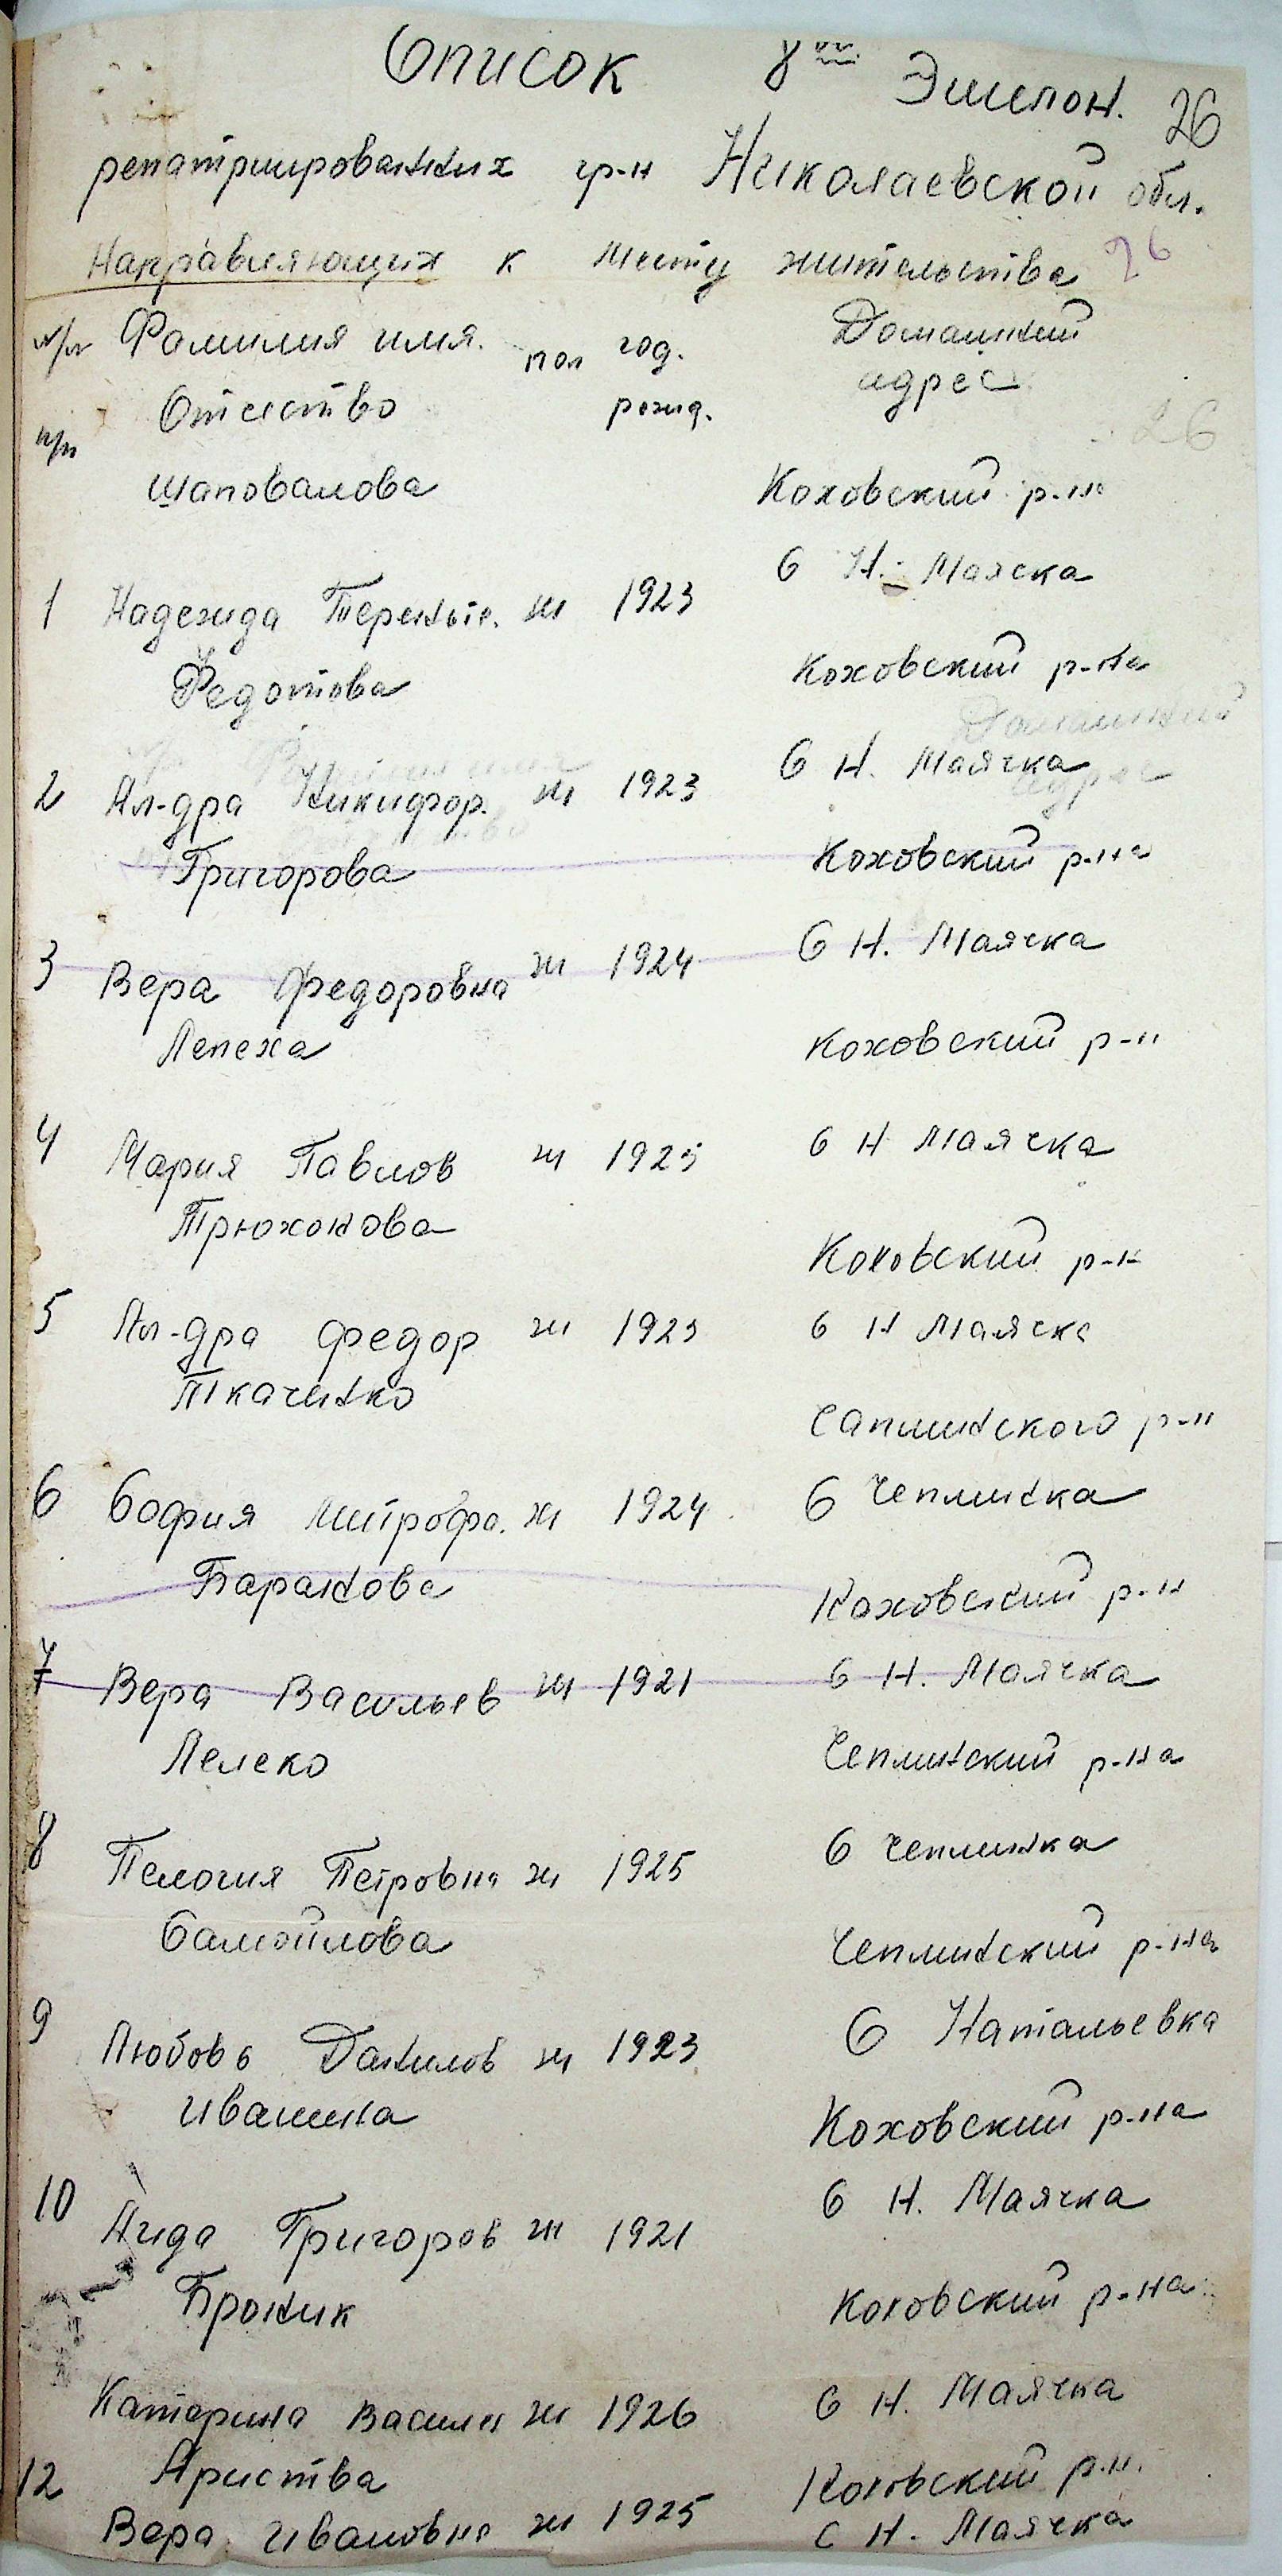 Список 8ой Эшелон. 26
репатрированных гр-н Николаевской обл.
Направляющих к месту жительства 26
Фамилия имя. пол год. Домашний
адрес
п/п Отчество рожд.
26
Шаповалова Коховский р-на
1 Надежда Терентье. ж 1923 С Н. Маяска
Федотова Коховский р-на
2 Ал-дра Никифор. ж 1923 С Н. Маячка
Григорова Коховский р-на
3 Вера Федоровна ж 1924 С Н. Маячка
Лепеха Коховский р-н
4 Мария Павлов ж 1925 С Н Маячка
Трюхонова Коховский р-н
5 Ал-дра Федор ж 1923 С Н Маяска
Ткаченко Саплинского р-н
6 София Митрофа. ж 1924 С Чеплинка
Баранова Каховский р-н
7 Вера Васильев ж 1921 С Н. Маячка
Лелеко Чеплинский р-на
8 Пелогия Петровна ж 1925 С Чеплинка
Самойлова Чеплинский р-на
9 Любовь Данилов ж 1923 С Натальевка
Ивашина Коховский р-на
10 Лида Григоров ж 1921 С Н. Маячка
Броник Коховский р-на
Катерина Василев ж 1926 С Н. Маячка
12 Ариства Коховский р.н.
Вера Ивановна ж 1925 С Н. Маячка